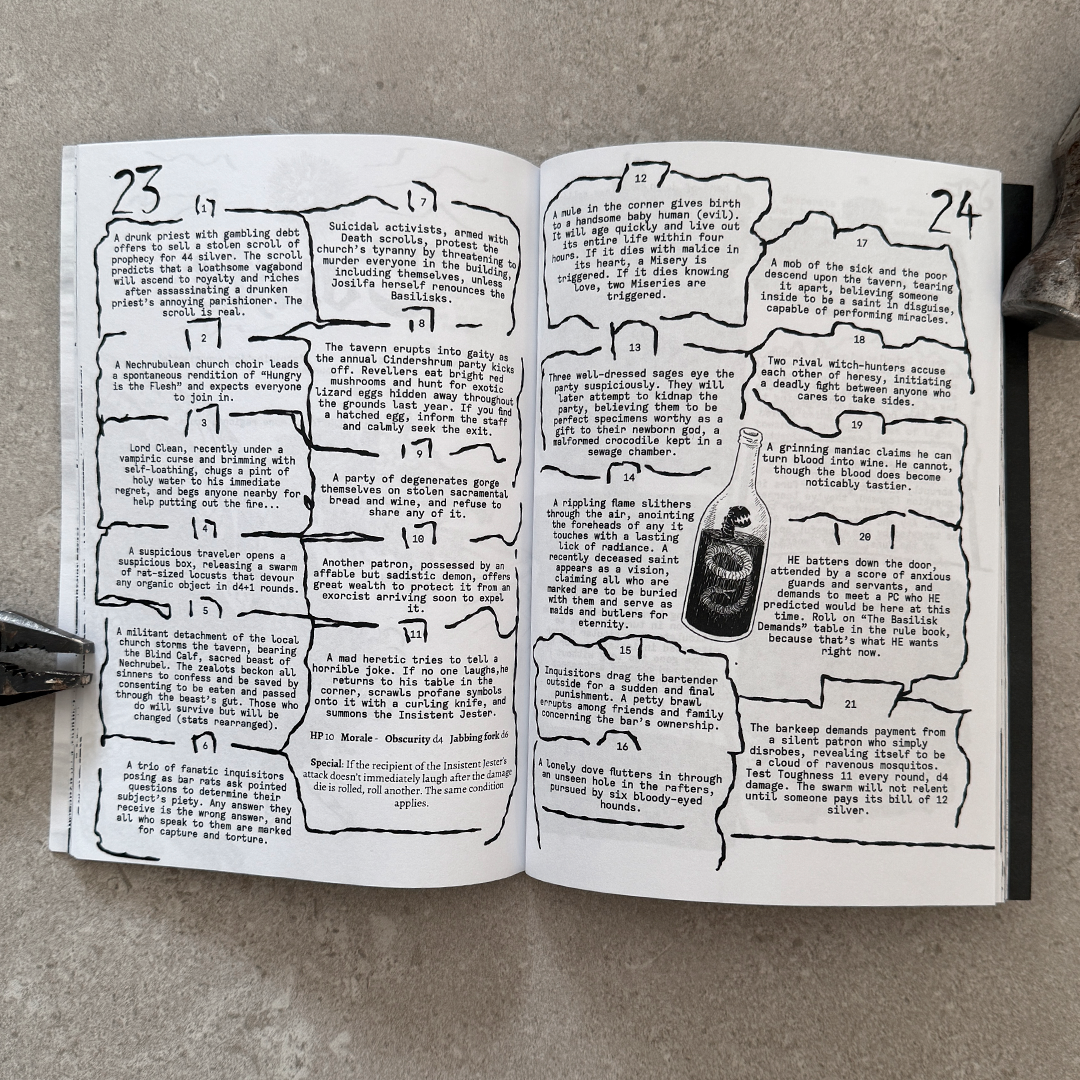 23
1
A drunk priest with gambling debt
offers to sell a stolen scroll of
prophecy for 44 silver. The scroll
predicts that a loathsome vagabond
will ascend to royalty and riches
after assassinating a drunken
priest's annoying parishioner. The
scroll is real.
2
A Nechrubulean church choir leads
a spontaneous rendition of "Hungry
is the Flesh" and expects everyone
to join in.
3
Lord Clean, recently under a
vampiric curse and brimming with
self-loathing, chugs a pint of
holy water to his immediate
regret, and begs anyone nearby for
help putting out the fire...
4
A suspicious traveler opens a
suspicious box, releasing a swarm
of rat-sized locusts that devour
any organic object in d4+1 rounds.
5
A militant detachment of the local
church storms the tavern, bearing
the Blind Calf, sacred beast of
Nechrubel. The zealots beckon all
sinners to confess and be saved by
consenting to be eaten and passed
through the beast's gut. Those who
do will survive but will be
changed (stats rearranged).
6
A trio of fanatic inquisitors
posing as bar rats ask pointed
questions to determine their
subject's piety. Any answer they
receive is the wrong answer, and
all who speak to them are marked
for capture and torture.
7
Suicidal activists, armed with
Death scrolls, protest the
church's tyranny by threatening to
murder everyone in the building,
including themselves, unless
Josilfa herself renounces the
Basilisks.
8
The tavern erupts into gaity as
the annual Cindershrum party kicks
off. Revellers eat bright red
mushrooms and hunt for exotic
lizard eggs hidden away throughout
the grounds last year. If you find
a hatched egg, inform the staff
and calmly seek the exit.
9
A party of degenerates gorge
themselves on stolen sacramental
bread and wine, and refuse to
share any of it.
10
Another patron, possessed by an
affable but sadistic demon, offers
great wealth to protect it from an
exorcist arriving soon to expel
it.
11
A mad heretic tries to tell a
horrible joke. If no one laughs,he
returns to his table in the
corner, scrawls profane symbols
onto it with a curling knife, and
summons the Insistent Jester.
HP 10 Morale - Obscurity d4 Jabbing fork d6
Special: If the recipient of the Insistent Jester's
attack doesn't immediately laugh after the damage
die is rolled, roll another. The same condition
applies.
12
A mule in the corner gives birth
to a handsome baby human (evil).
It will age quickly and live out
its entire life within four
hours. If it dies with malice in
its heart, a Misery is
triggered. If it dies knowing
love, two Miseries are
triggered.
13
Three well-dressed sages eye the
party suspiciously. They will
later attempt to kidnap the
party, believing them to be
perfect specimens worthy as a
gift to their newborn god, a
malformed crocodile kept in a
sewage chamber.
14
A rippling flame slithers
through the air, anointing
the foreheads of any it
touches with a lasting
lick of radiance. A
recently deceased saint
appears as a vision,
claiming all who are
marked are to be buried
with them and serve as
maids and butlers for
eternity.
15
Inquisitors drag the bartender
outside for a sudden and final
punishment. A petty brawl
errupts among friends and family
concerning the bar's ownership.
16
A lonely dove flutters in through
an unseen hole in the rafters,
pursued by six bloody-eyed
hounds.
24
17
A mob of the sick and the poor
descend upon the tavern, tearing
it apart, believing someone
inside to be a saint in disguise,
capable of performing miracles.
18
Two rival witch-hunters accuse
each other of heresy, initiating
a deadly fight between anyone who
cares to take sides.
19
A grinning maniac claims he can
turn blood into wine. He cannot,
though the blood does become
noticably tastier.
20
HE batters down the door,
attended by a score of anxious
guards and servants, and
demands to meet a PC who HE
predicted would be here at this
time. Roll on "The Basilisk
Demands" table in the rule book,
because that's what HE wants
right now.
21
The barkeep demands payment from
a silent patron who simply
disrobes, revealing itself to be
a cloud of ravenous mosquitos.
Test Toughness 11 every round, d4
damage. The swarm will not relent
until someone pays its bill of 12
silver.